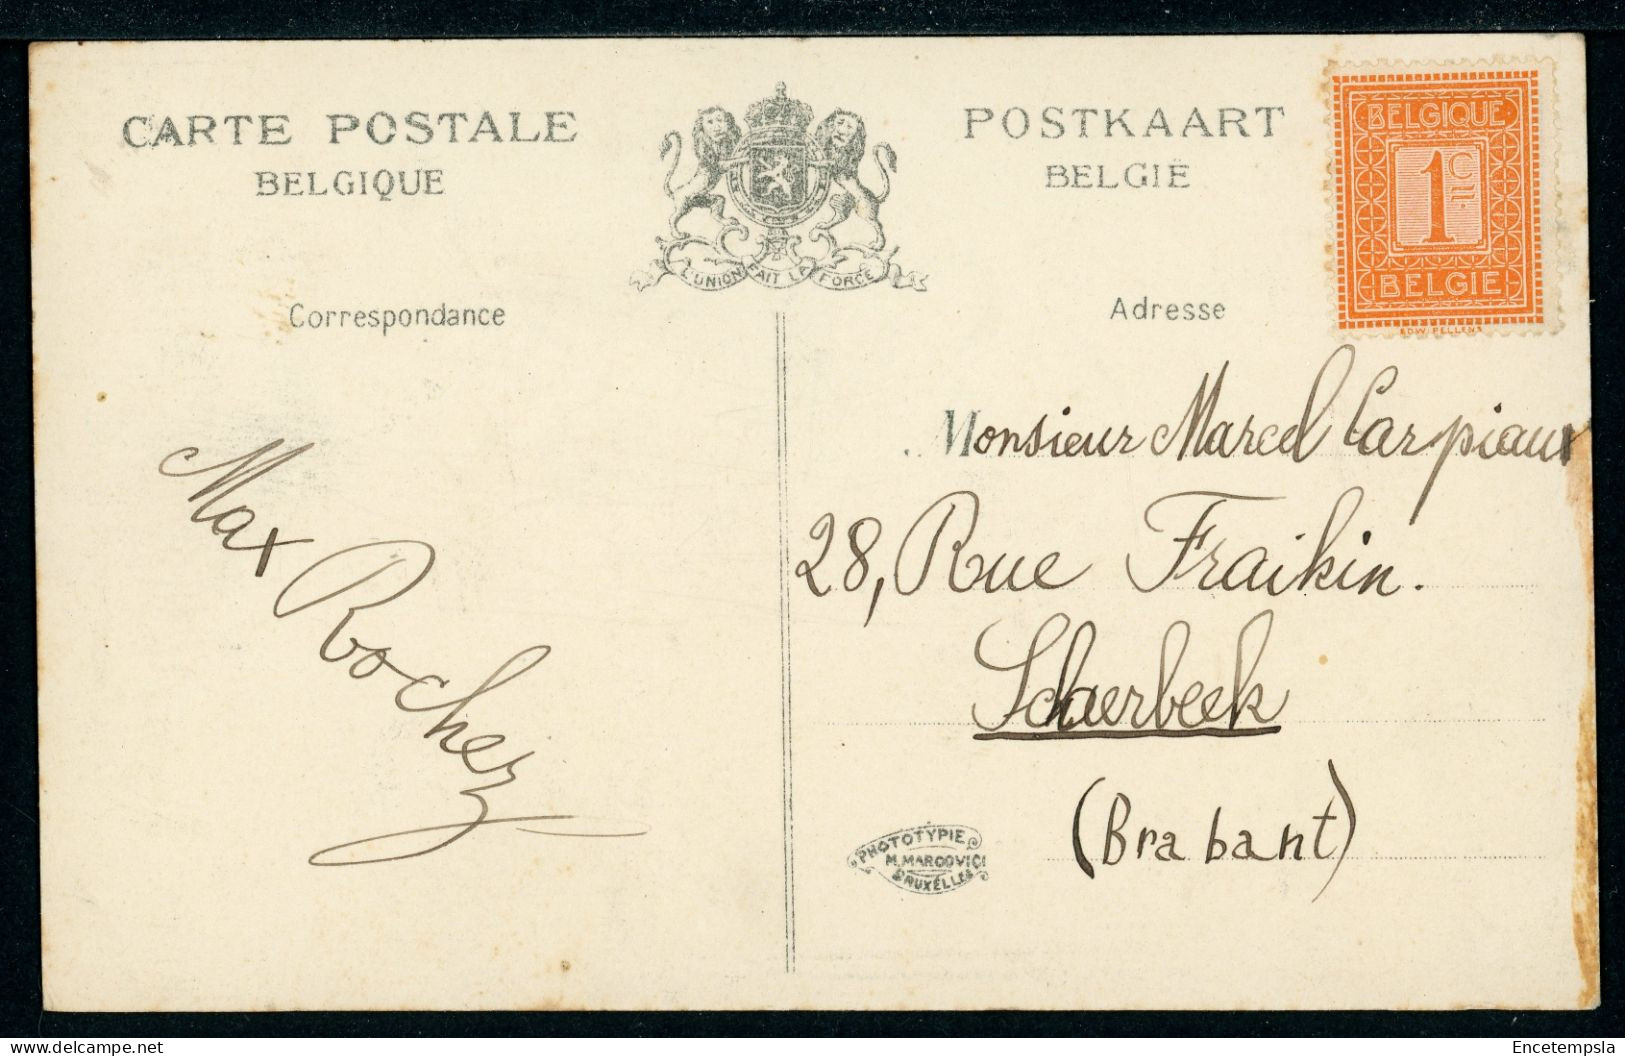 CARTE POSTALE
BELGIQUE
POSTKAART
BELGIË
BELGIQUE
1 C
BELGIE
EDW. PELLENS
L'UNION FAIT LA FORCE
Correspondance
Adresse
Max Rocherz
Monsieur Marcel Carpiaux
28, Rue Fraikin.
Schaerbeek
(Brabant)
PHOTOTYPIE
M. MARCOVICI
BRUXELLES
Encetempsla